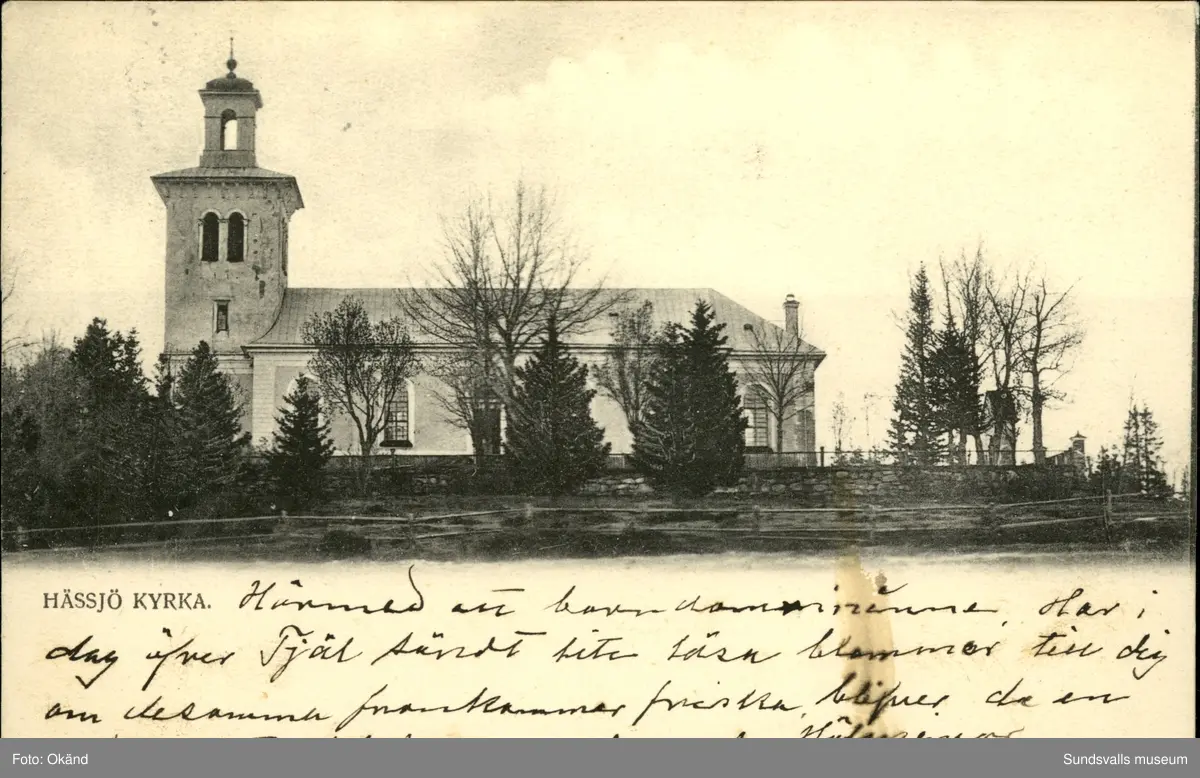 HÄSSJÖ KYRKA. Härmed ett barndomsminne, Har i
dag öfver Tjäl sändt lite lösa blommor till dig
om desamma framkommer friska, blifver de en
Foto: Okänd
Sundsvalls museum